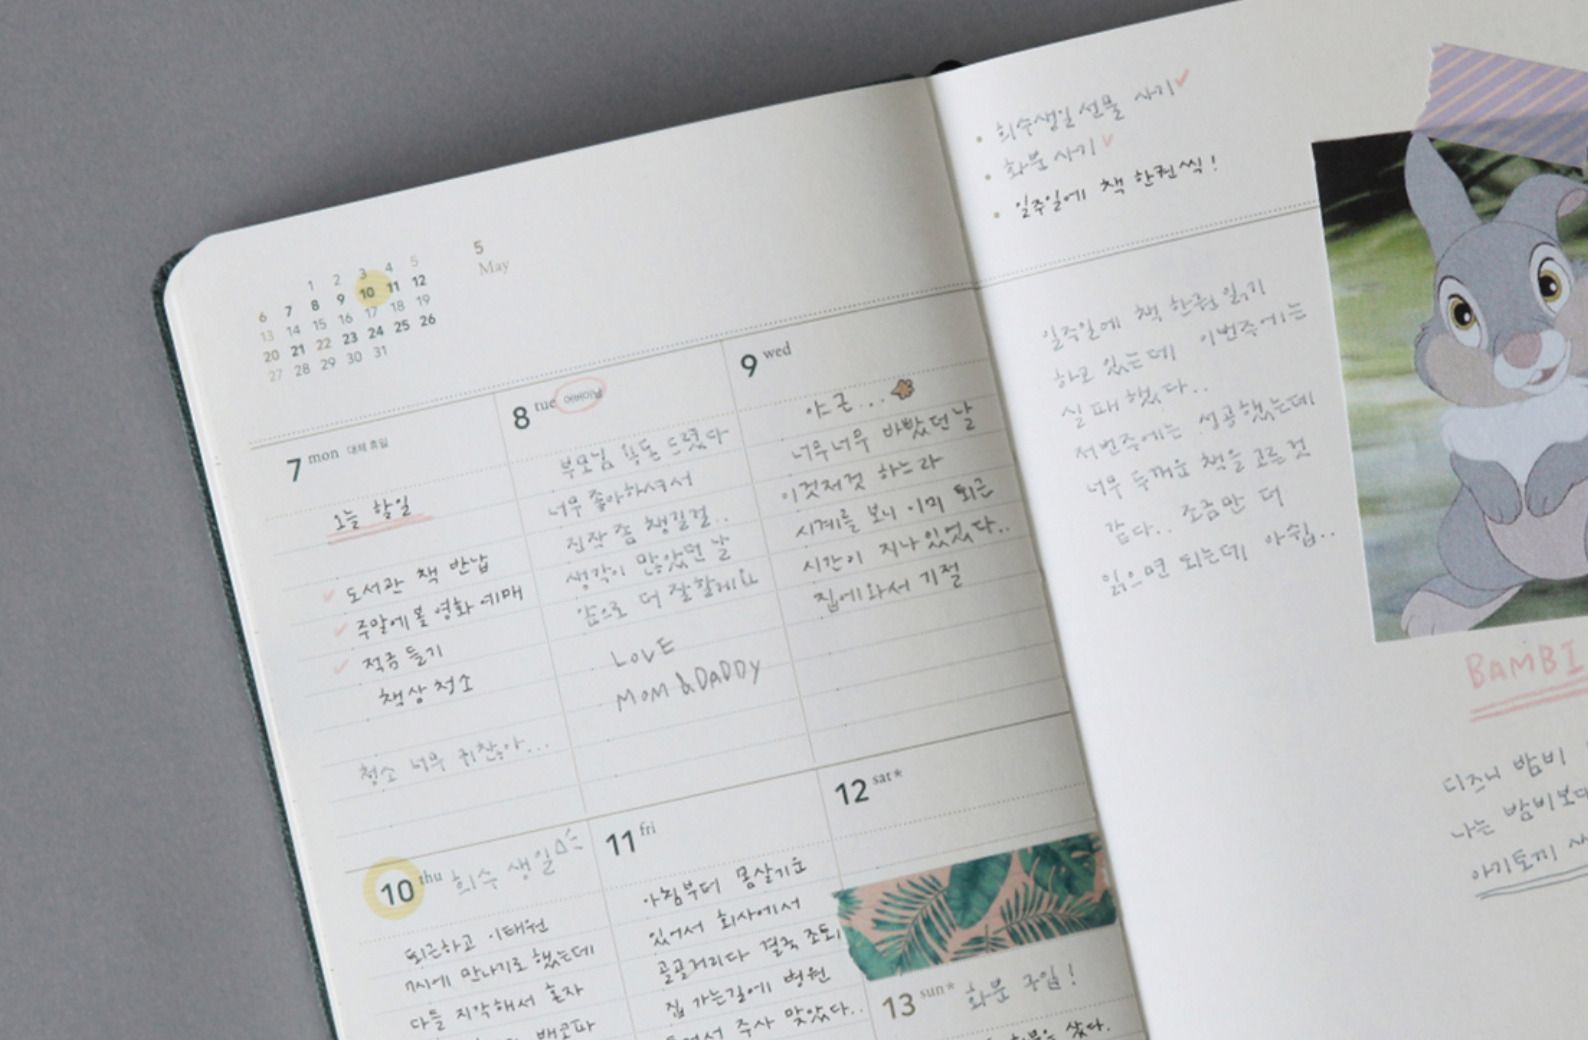 5
May
1 2 3 4 5
6 7 8 9 10 11 12
13 14 15 16 17 18 19
20 21 22 23 24 25 26
27 28 29 30 31
7 mon 대체 휴일
오늘 할일
도서관 책 반납
주말에 볼 영화 예매
적금 들기
책상 청소
청소 너무 귀찮아...
8 tue 어버이날
부모님 용돈 드렸다
너무 좋아하셔서
진작 좀 챙길걸..
생각이 많았던 날
앞으로 더 잘할게요
LOVE
MOM & DADDY
9 wed
야근...
너무너무 바빴던 날
이것저것 하느라
시계를 보니 이미 퇴근
시간이 지나 있었다..
집에와서 기절
10 thu 희수 생일
퇴근하고 이태원
7시에 만나기로 했는데
다들 지각해서 혼자
배고파
11 fri
아침부터 몸살기운
있어서 회사에서
골골거리다 결국 조퇴
집 가는길에 병원
주사 맞았다..
12 sat*
13 sun* 화분 구입!
화분을 샀다.
• 희수생일선물 사기
• 화분 사기
• 일주일에 책 한권씩!
일주일에 책 한권 읽기
하고 있는데 이번주에는
실패했다..
저번주에는 성공했는데
너무 두꺼운 책을 고른 것
같다.. 조금만 더
읽으면 되는데 아쉽..
BAMBI
디즈니 밤비
나는 밤비보다
아기토끼